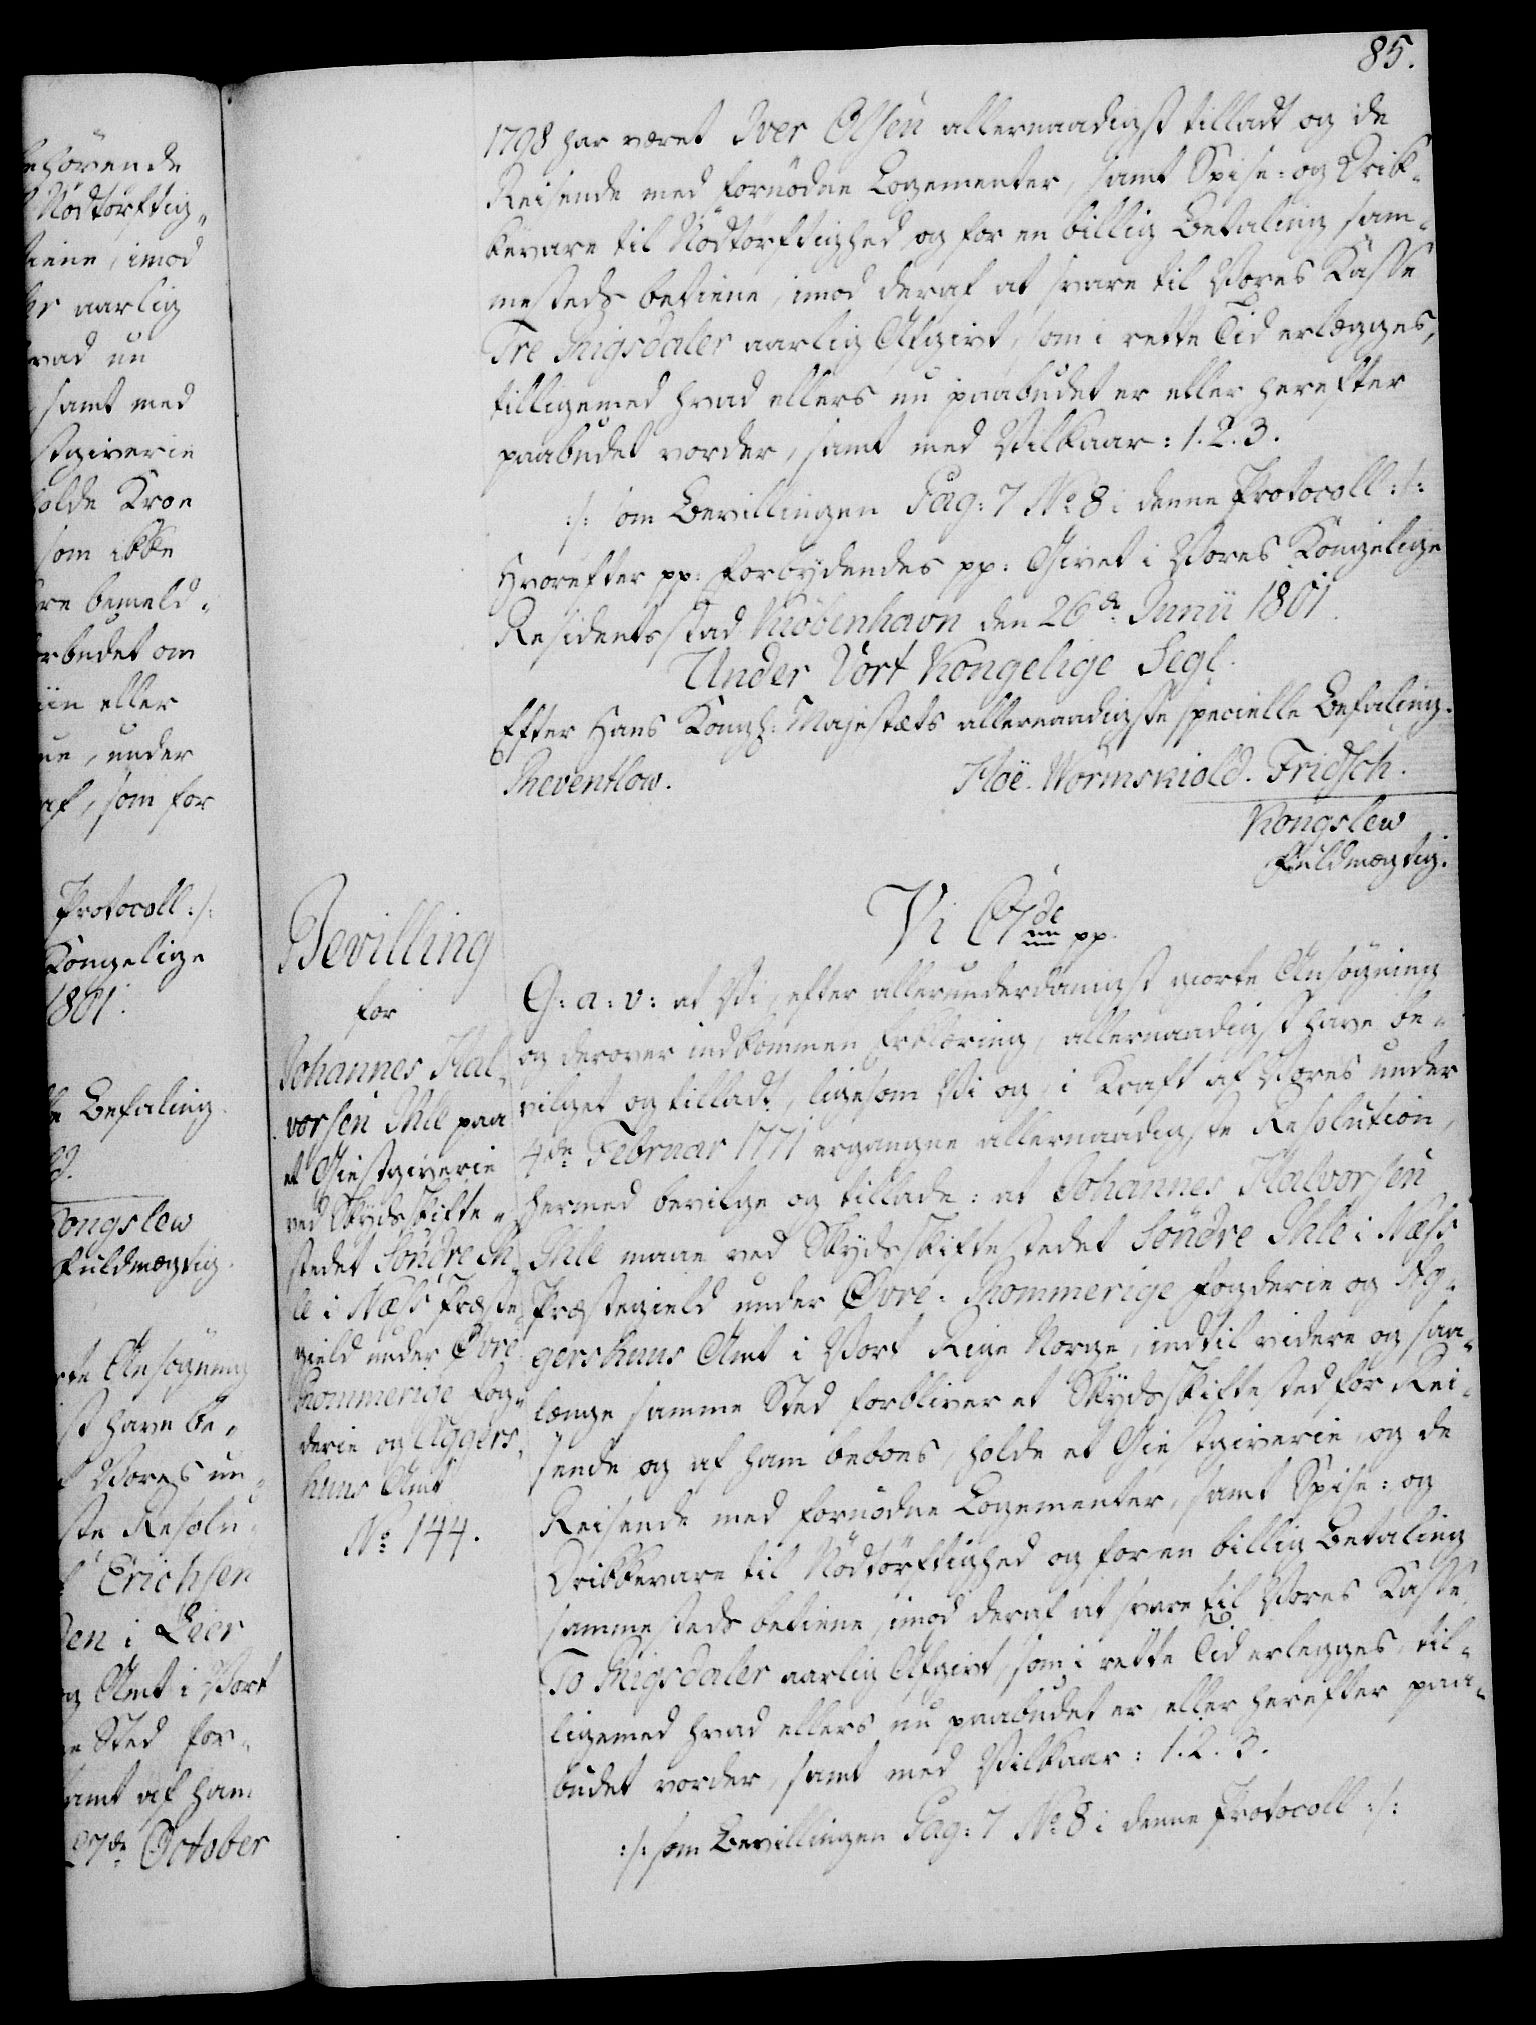 85.
1798 har været Iver Olsen allernaadigst tilladt og de
Reisende med fornödne Logementer, samt Spise- og Drik-
kevare til Nödtörftighed og for en billig Betaling sam-
mesteds betiene, imod deraf at svare til Vores Kasse
Tre Rigsdaler aarlig Afgivt, som i rette Tid erlægges,
tilligemed hvad ellers nu paabudet er eller herefter
paabudet vorder, samt med Vilkaar: 1. 2. 3.
:/: som Bevillingen Pag: 7 No 8 i denne Protocoll :/:
Hvorefter pp: Forbydendes pp: Givet i Vores Kongelige
Residentsstad Kiöbenhavn den 26de Junii 1801.
Under Vort Kongelige Segl.
Efter Hans Kongl: Majestæts allernaadigste specielle Befaling.
Reventlow. Höe. Wormskiold. Fridsch.
Kongslew
Fuldmægtig.
Bevilling
for
Johannes Hal-
vorsen Ihle paa
et Giestgiverie
ved Skydsskifte-
stedet Söndre Ih-
le i Næss Præste-
gield under Øvre
Rommerige Fog-
derie og Aggers-
huus Amt
No 144.
Vi C7de pp.
G: a: v: at Vi, efter allerunderdanigst giorte Ansögning
og derover indkommen Erklæring, allernaadigst have be-
vilget og tilladt, ligesom Vi og, i Kraft af Vores under
4de Februar 1771 ergangne allernaadigste Resolution,
hermed bevilge og tillade: at Johannes Halvorsen
Ihle maae ved Skydsskiftestedet Söndre Ihle i Næss
Præstegield under Øvre-Rommerige Fogderie og Ag-
gershuus Amt i Vort Rige Norge, indtil videre og saa-
længe samme Sted forbliver et Skydsskiftested for Rei-
sende og af ham beboes, holde et Giestgiverie, og de
Reisende med fornödne Logementer, samt Spise- og
Drikkevare til Nödtörftighed og for en billig Betaling
sammesteds betiene, imod deraf at svare til Vores Kasse
To Rigsdaler aarlig Afgivt, som i rette Tid erlegges, til-
ligemed hvad ellers nu paabudet er, eller herefter paa-
budet vorder, samt med Vilkaar: 1. 2. 3.
:/: som Bevillingen Pag: 7 No 8 i denne Protocoll :/: